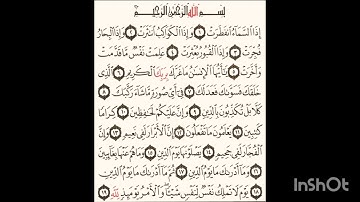 بِسْمِ اللَّهِ الرَّحْمَٰنِ الرَّحِيمِ
إِذَا السَّمَاءُ انفَطَرَتْ ١ وَإِذَا الْكَوَاكِبُ انتَثَرَتْ ٢ وَإِذَا الْبِحَارُ
فُجِّرَتْ ٣ وَإِذَا الْقُبُورُ بُعْثِرَتْ ٤ عَلِمَتْ نَفْسٌ مَّا قَدَّمَتْ
وَأَخَّرَتْ ٥ يَا أَيُّهَا الْإِنسَانُ مَا غَرَّكَ بِرَبِّكَ الْكَرِيمِ ٦ الَّذِي
خَلَقَكَ فَسَوَّاكَ فَعَدَلَكَ ٧ فِي أَيِّ صُورَةٍ مَّا شَاءَ رَكَّبَكَ ٨
كَلَّا بَلْ تُكَذِّبُونَ بِالدِّينِ ٩ وَإِنَّ عَلَيْكُمْ لَحَافِظِينَ ١٠ كِرَامًا
كَاتِبِينَ ١١ يَعْلَمُونَ مَا تَفْعَلُونَ ١٢ إِنَّ الْأَبْرَارَ لَفِي نَعِيمٍ ١٣ وَإِنَّ
الْفُجَّارَ لَفِي جَحِيمٍ ١٤ يَصْلَوْنَهَا يَوْمَ الدِّينِ ١٥ وَمَا هُمْ عَنْهَا بِغَائِبِينَ
١٦ وَمَا أَدْرَاكَ مَا يَوْمُ الدِّينِ ١٧ ثُمَّ مَا أَدْرَاكَ مَا يَوْمُ الدِّينِ
١٨ يَوْمَ لَا تَمْلِكُ نَفْسٌ لِّنَفْسٍ شَيْئًا وَالْأَمْرُ يَوْمَئِذٍ لِّلَّهِ ١٩
InShOt